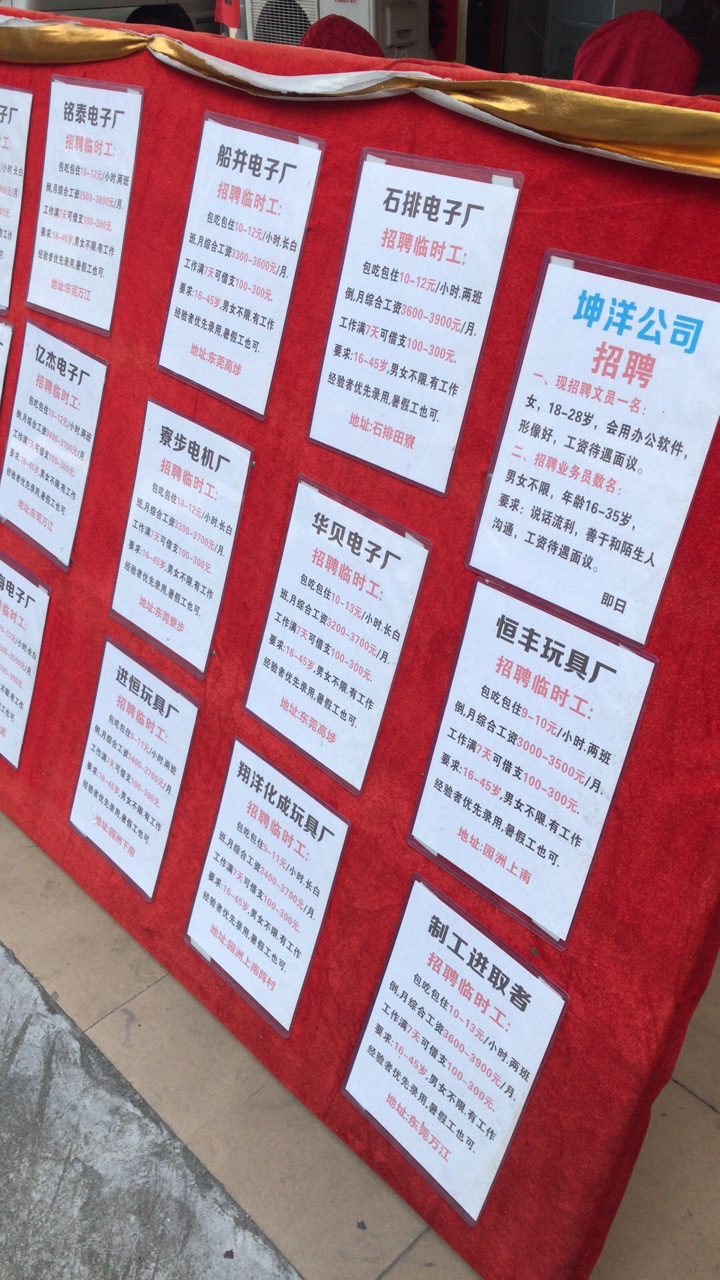 子厂
铭泰电子厂
招聘临时工:
包吃包住10-12元/小时.两班
倒,月综合工资3500-3800元/月.
工作满7天可借支100-300元.
要求:16-45岁,男女不限.有工作
经验者优先录用,暑假工也可.
地址:东莞万江
船井电子厂
招聘临时工:
包吃包住10-12元/小时,长白
班,月综合工资3300-3600元/月.
工作满7天可借支100-300元.
要求:16-45岁,男女不限.有工作
经验者优先录用,暑假工也可.
地址:东莞高埗
石排电子厂
招聘临时工:
包吃包住10-12元/小时.两班
倒,月综合工资3600-3900元/月.
工作满7天可借支100-300元.
要求:16-45岁,男女不限.有工作
经验者优先录用,暑假工也可.
地址:石排田寮
坤洋公司
招聘
一、现招聘文员一名:
女，18-28岁，会用办公软件，
形像好，工资待遇面议。
二、招聘业务员数名:
男女不限，年龄16-35岁，
要求：说话流利，善于和陌生人
沟通，工资待遇面议。
即日
亿杰电子厂
招聘临时工:
包吃包住10-12元/小时.两班
倒,月综合工资3400-3700元/月.
工作满7天可借支100-300元.
要求:16-45岁,男女不限.有工作
经验者优先录用,暑假工也可.
地址:东莞万江
寮步电机厂
招聘临时工:
包吃包住10-12元/小时,长白
班,月综合工资3300-3700元/月.
工作满7天可借支100-300元.
要求:16-45岁,男女不限.有工作
经验者优先录用,暑假工也可.
地址:东莞寮步
华贝电子厂
招聘临时工:
包吃包住10-13元/小时,长白
班,月综合工资3200-3700元/月.
工作满7天可借支100-300元.
要求:16-45岁,男女不限.有工作
经验者优先录用,暑假工也可.
地址:东莞高埗
恒丰玩具厂
招聘临时工:
包吃包住9-10元/小时.两班
倒,月综合工资3000-3500元/月.
工作满7天可借支100-300元.
要求:16-45岁,男女不限.有工作
经验者优先录用,暑假工也可.
地址:园洲上南
电子厂
进恒玩具厂
招聘临时工:
包吃包住9-11元/小时.两班
倒,月综合工资3400-3700元/月.
工作满7天可借支100-300元.
要求:16-45岁,男女不限.有工作
经验者优先录用,暑假工也可.
地址:园洲下南
翔洋化成玩具厂
招聘临时工:
包吃包住9-11元/小时,长白
班,月综合工资3400-3700元/月.
工作满7天可借支100-300元.
要求:16-45岁,男女不限.有工作
经验者优先录用,暑假工也可.
地址:园洲上南阵村
制工进取者
招聘临时工:
包吃包住10-13元/小时.两班
倒,月综合工资3600-3900元/月.
工作满7天可借支100-300元.
要求:16-45岁,男女不限.有工作
经验者优先录用,暑假工也可.
地址:东莞万江